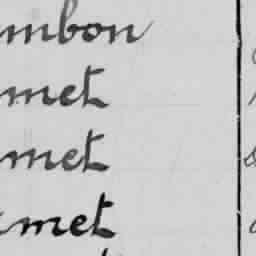 mbon
met
met
met